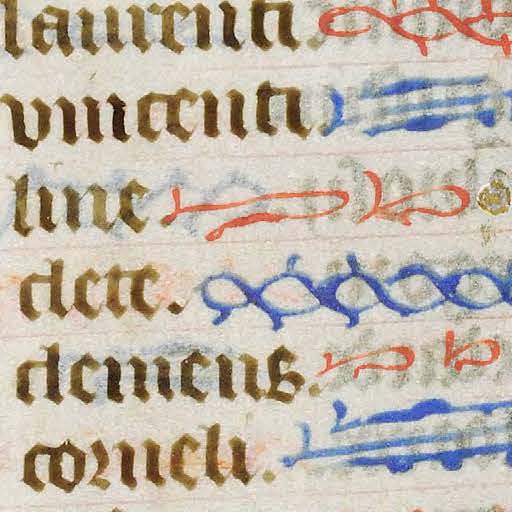 laurenti.
vincenti.
line.
clete.
clemens.
corneli.